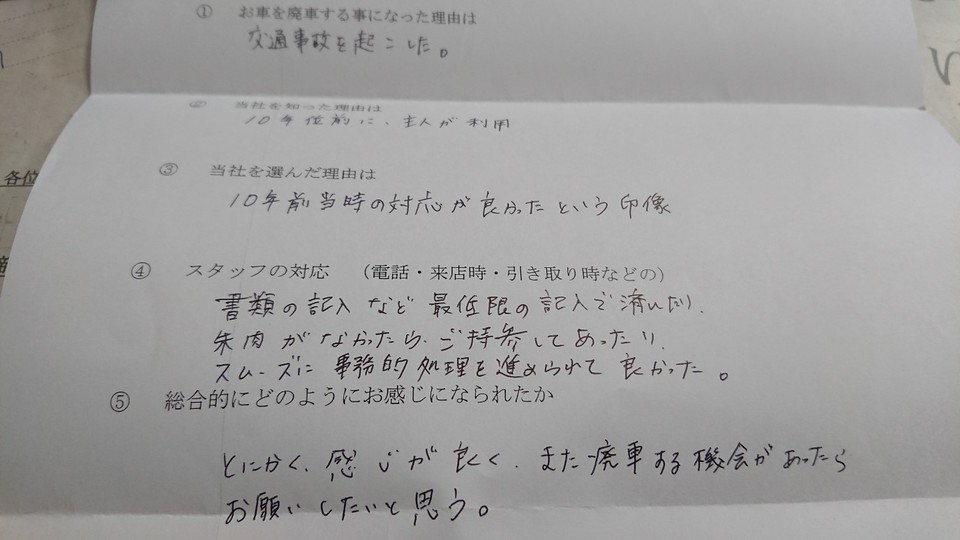 ① お車を廃車する事になった理由は
交通事故を起こした。
② 当社を知った理由は
10年位前に、主人が利用
③ 当社を選んだ理由は
10年前当時の対応が良かったという印像
④ スタッフの対応 (電話・来店時・引き取り時などの)
書類の記入など最低限の記入で済んだり、
朱肉がなかったら、ご持参してあったり、
スムーズに事務的処理を進められて良かった。
⑤ 総合的にどのようにお感じになられたか
とにかく、感じが良く、また廃車する機会があったら
お願いしたいと思う。
各位